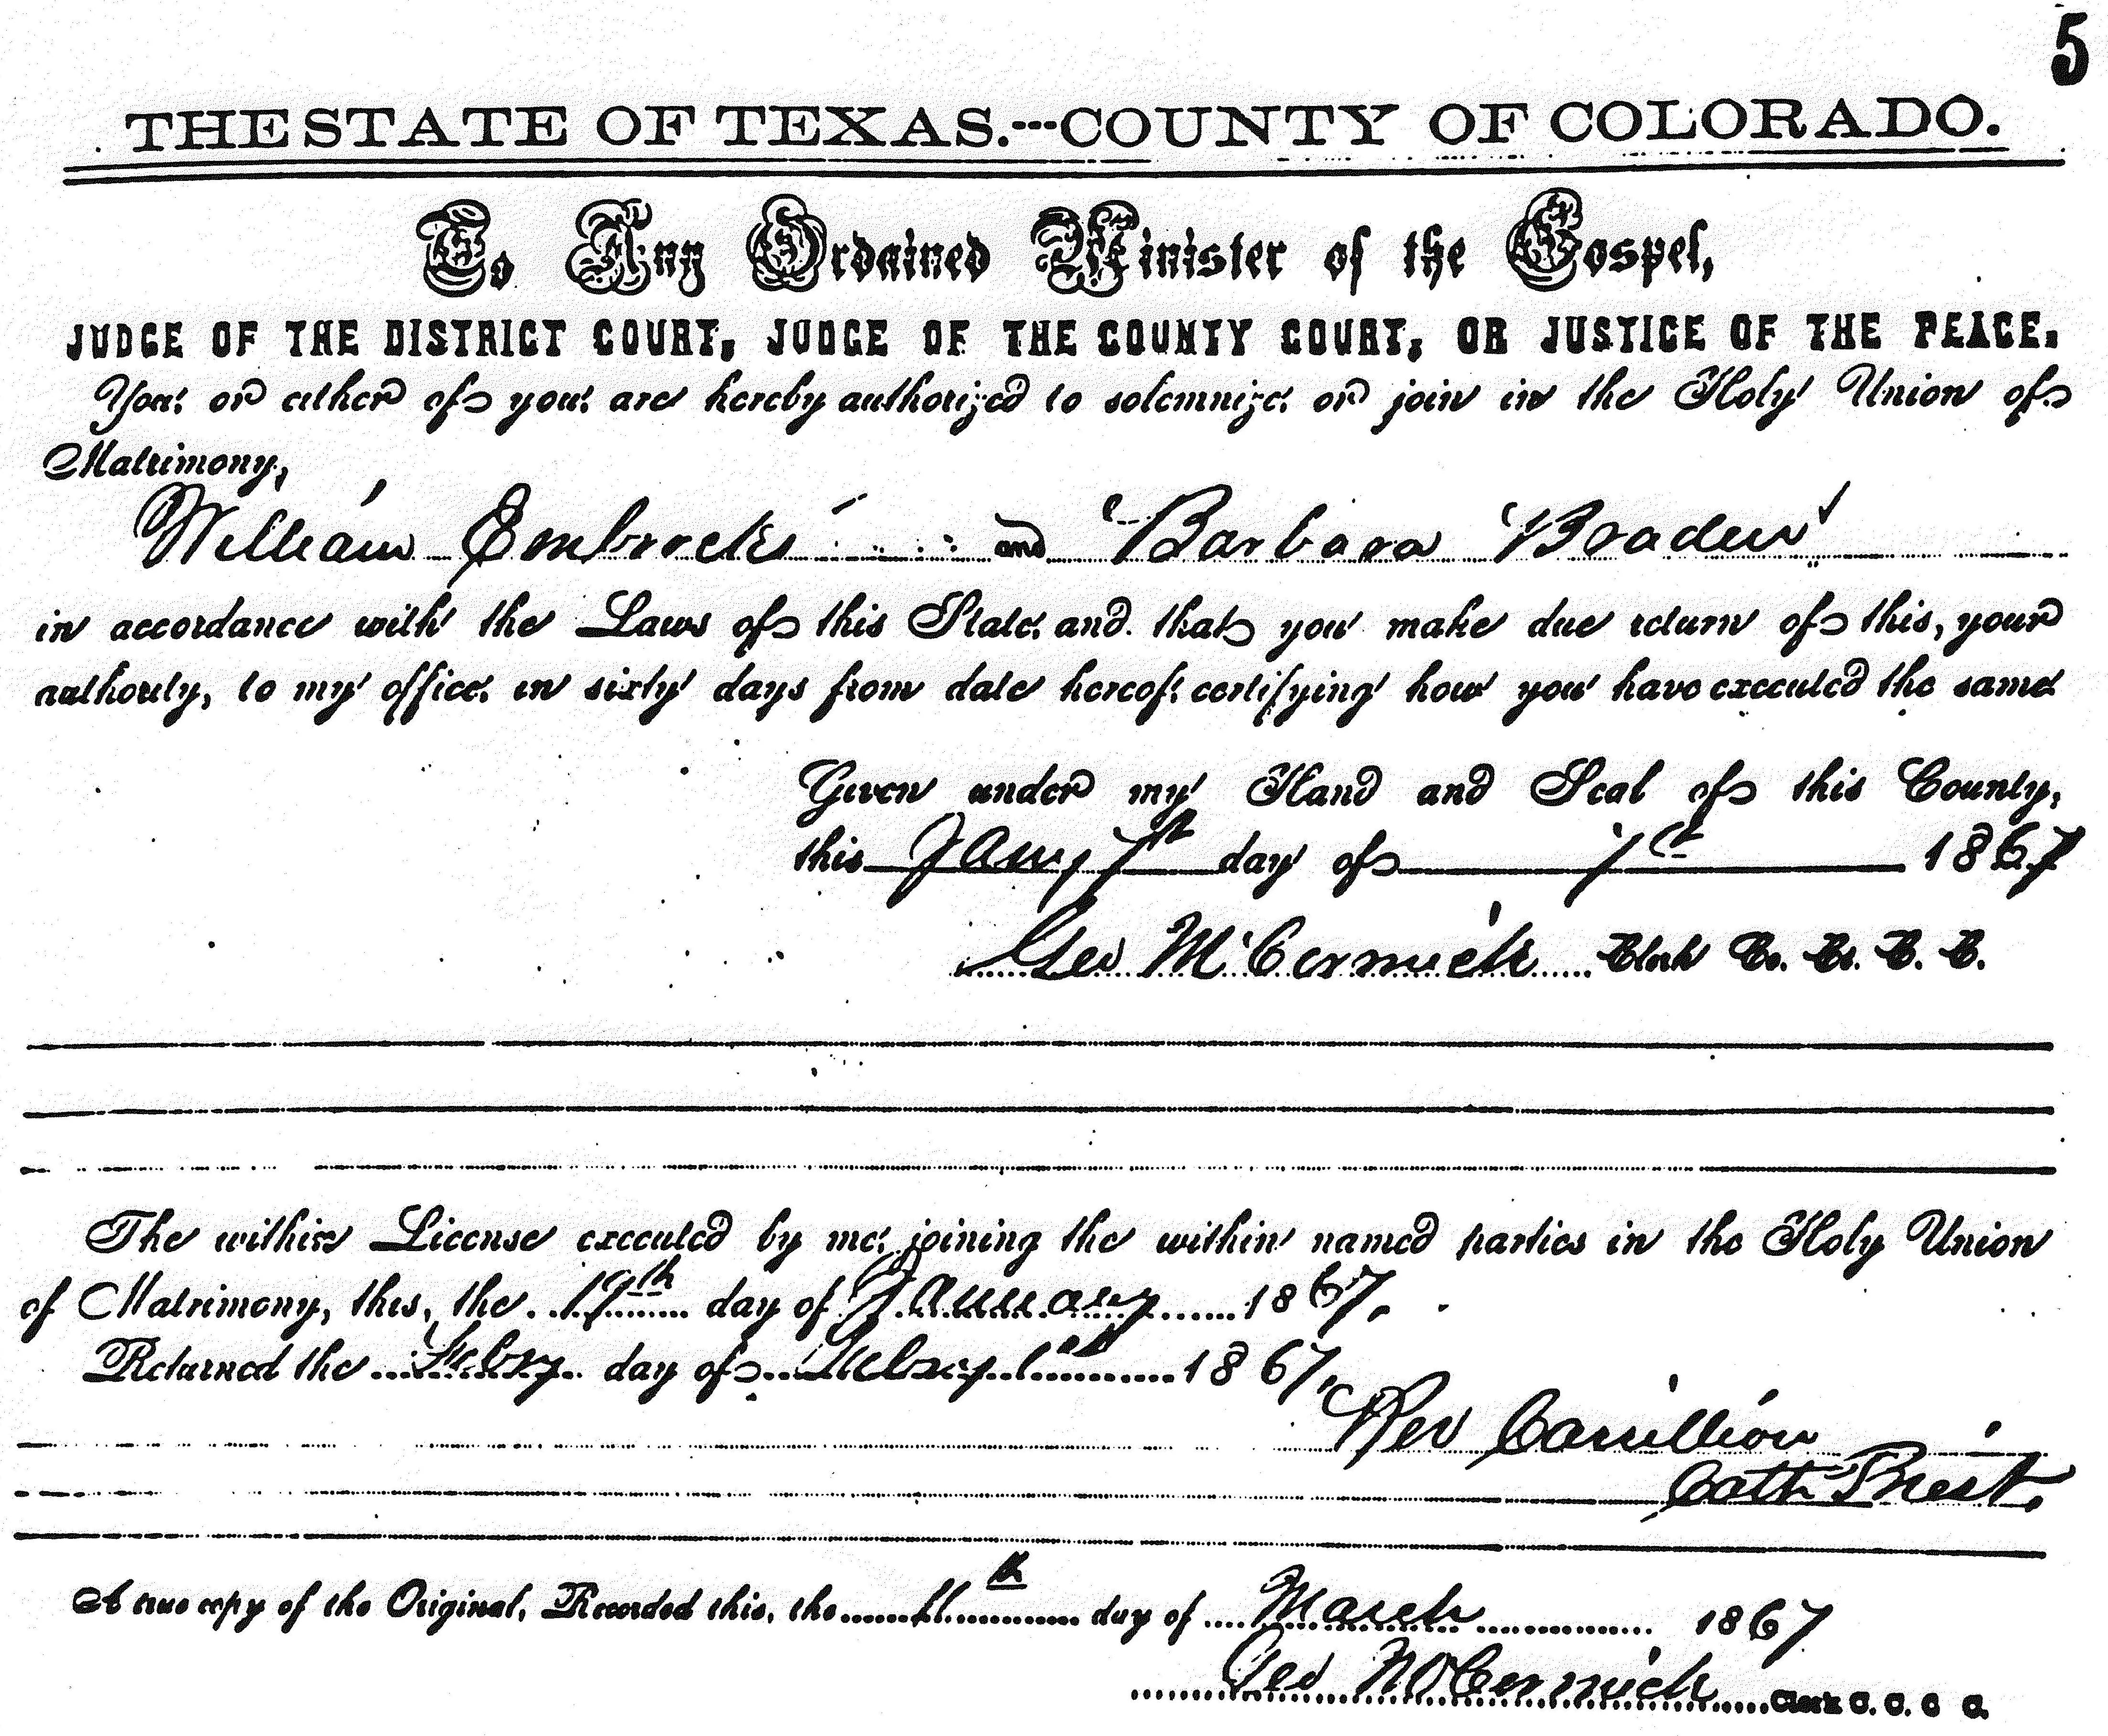 5
THE STATE OF TEXAS.---COUNTY OF COLORADO.
To Any Ordained Minister of the Gospel,
JUDGE OF THE DISTRICT COURT, JUDGE OF THE COUNTY COURT, OR JUSTICE OF THE PEACE.
You or either of you are hereby authorized to solemnize or join in the Holy Union of
Matrimony,
William Embrocks and Barbara Braden
in accordance with the Laws of this State and that you make due return of this, your
authority, to my office in sixty days from date hereof certifying how you have executed the same
Given under my Hand and Seal of this County,
this Jany 7st day of 1867
Geo McCormick Clerk Co. Ct. C. C.
The within License executed by me, joining the within named parties in the Holy Union
of Matrimony, this, the 19th day of January 1867.
Returned the Febry day of Febry 1st 1867.
Rev Carrillion
Cath Priest.
A true copy of the Original, Recorded this, the 11th day of March 1867
Geo McCormick Clerk C. C. C C.